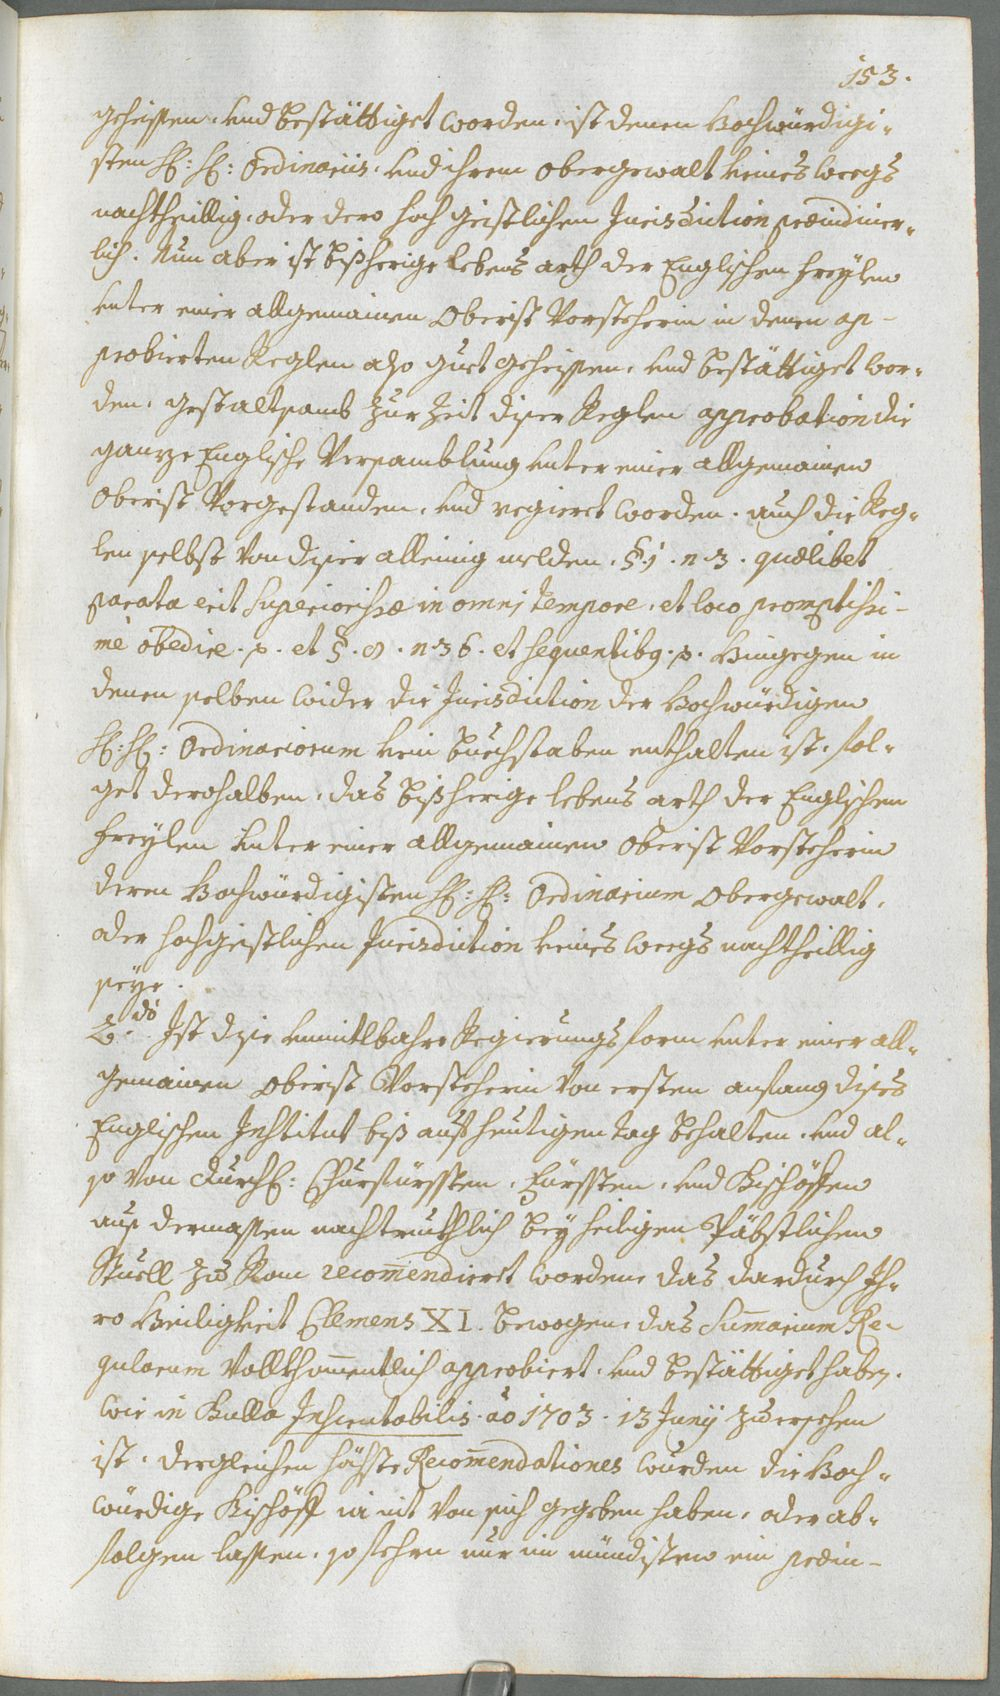 153.
geheissen, und bestättiget worden, ist denen Hochwürdigi-
sten H: H: Ordinariis, und ihrem obergewalt keines weegs
nachtheillig, oder dero hoch geistlichen Jurisdiction præiudicier-
lich. Nun aber ist bißherige lebens arth der Englischen freylen
unter einer allgemainen Oberist Vorsteherin in denen ap-
probierten Reglen also guet geheissen, und bestättiget wor-
den, gestaltsamb zur zeit diser Reglen approbation die
gantze Englische Versamblung unter einer allgemainen
Oberist Vorgestanden, und regieret worden. auch die Reg-
len selbst von diser alleinig melden. §. 1. n. 3. quælibet
parata erit Superiorissæ in omni tempore, et loco promptissi-
mè obedire. p. et §. 8. n. 36. et sequentibq. p. Hingegen in
denen selben wider die Jurisdiction der Hochwürdigen
H: H: Ordinariorum kein buechstaben enthalten ist. fol-
get derohalben, das bißherige lebens arth der Englischen
freylen unter einer allgemainen Oberist Vorsteherin
deren Hochwürdigisten H: H: Ordinarium Obergewalt,
oder hochgeistlichen Jurisdiction keines weegs nachtheillig
seye.
2.do Ist dise unmitlbahre Regierungs form unter einer all-
gemainen Oberist Vorsteherin von ersten anfang dises
Englischen Institut biß auf heutigen tag behalten, und al-
so von durchl: Churfürsten, Fürsten, und Bischöffen
auf dermassen nachtruckhlich bey heiligen Päbstlichen
Stuell zu Rom recom̄endieret worden, das dardurch Ih-
ro Heiligkeit Clemens XI. bewogen, das Sum̄arium Re-
gularum vollkhom̄entlich approbiert, und bestättiget haben.
wie in Bulla Inscrutabilis. aō 1703. 13 Junij zu ersehen
ist. dergleichen höchste Recom̄endationes wurden die Hoch-
würdige Bischöff ia nit von sich gegeben haben, oder ab-
folgen lassen, so fehrn nur im mündisten ein præiu-